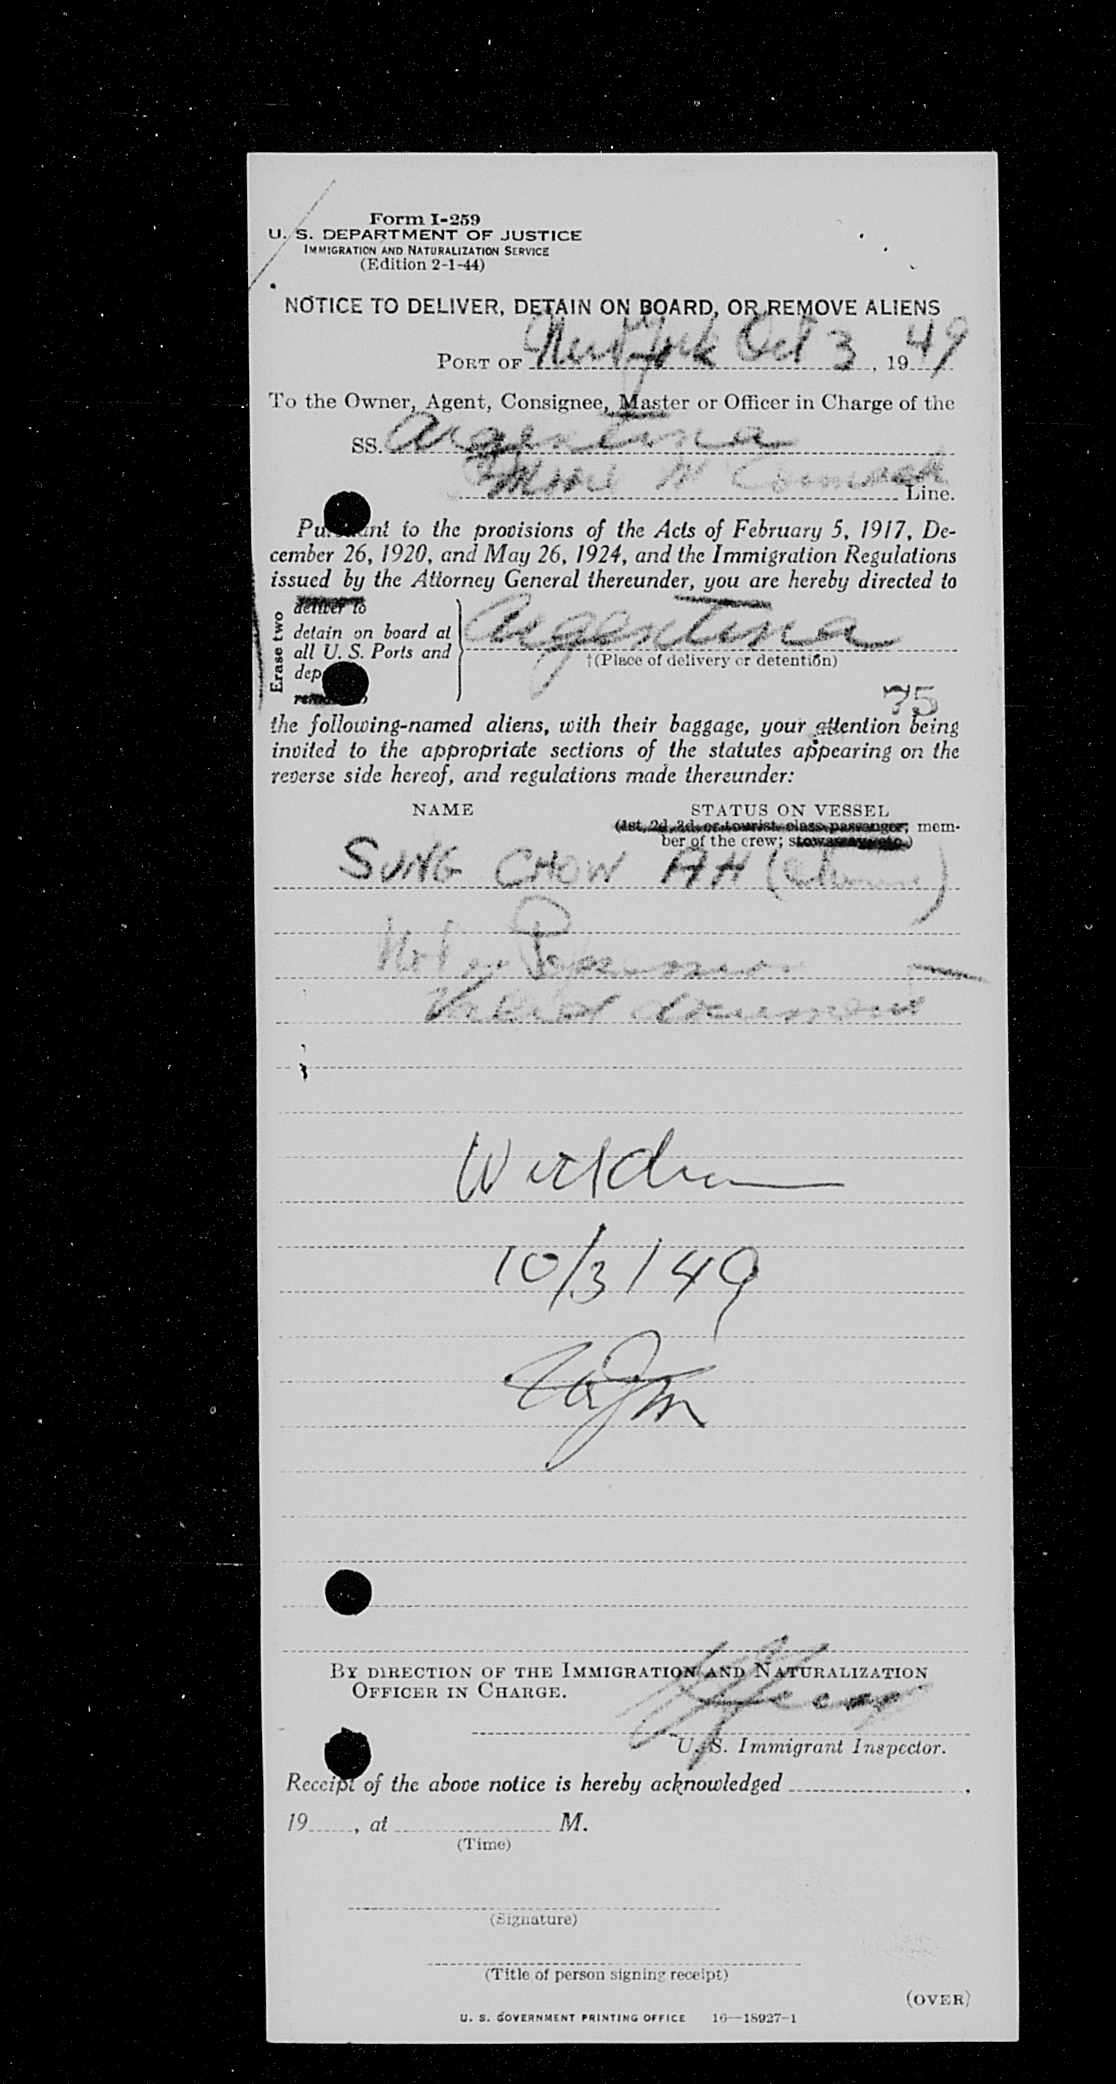 Form I-259
U. S. DEPARTMENT OF JUSTICE
IMMIGRATION AND NATURALIZATION SERVICE
(Edition 2-1-44)
NOTICE TO DELIVER, DETAIN ON BOARD, OR REMOVE ALIENS
PORT OF New York Oct 3, 1949
To the Owner, Agent, Consignee, Master or Officer in Charge of the
SS. Argentina
Moore McCormack Line.
Pursuant to the provisions of the Acts of February 5, 1917, De-
cember 26, 1920, and May 26, 1924, and the Immigration Regulations
issued by the Attorney General thereunder, you are hereby directed to
Erase two
deliver to
detain on board at
all U. S. Ports and
dep
remove to
Argentina
†(Place of delivery or detention)
75
the following-named aliens, with their baggage, your attention being
invited to the appropriate sections of the statutes appearing on the
reverse side hereof, and regulations made thereunder:
NAME STATUS ON VESSEL
(1st, 2d, 3d, or tourist class passenger; mem-
ber of the crew; stowaway, etc.)
SUNG CHOW AH (Chinese)
Not in Possession
Valid document
Withdrawn
10/3/49
BY DIRECTION OF THE IMMIGRATION AND NATURALIZATION
OFFICER IN CHARGE.
U. S. Immigrant Inspector.
Receipt of the above notice is hereby acknowledged ,
19 , at M.
(Time)
(Signature)
(Title of person signing receipt)
(OVER)
U. S. GOVERNMENT PRINTING OFFICE 16—18927-1